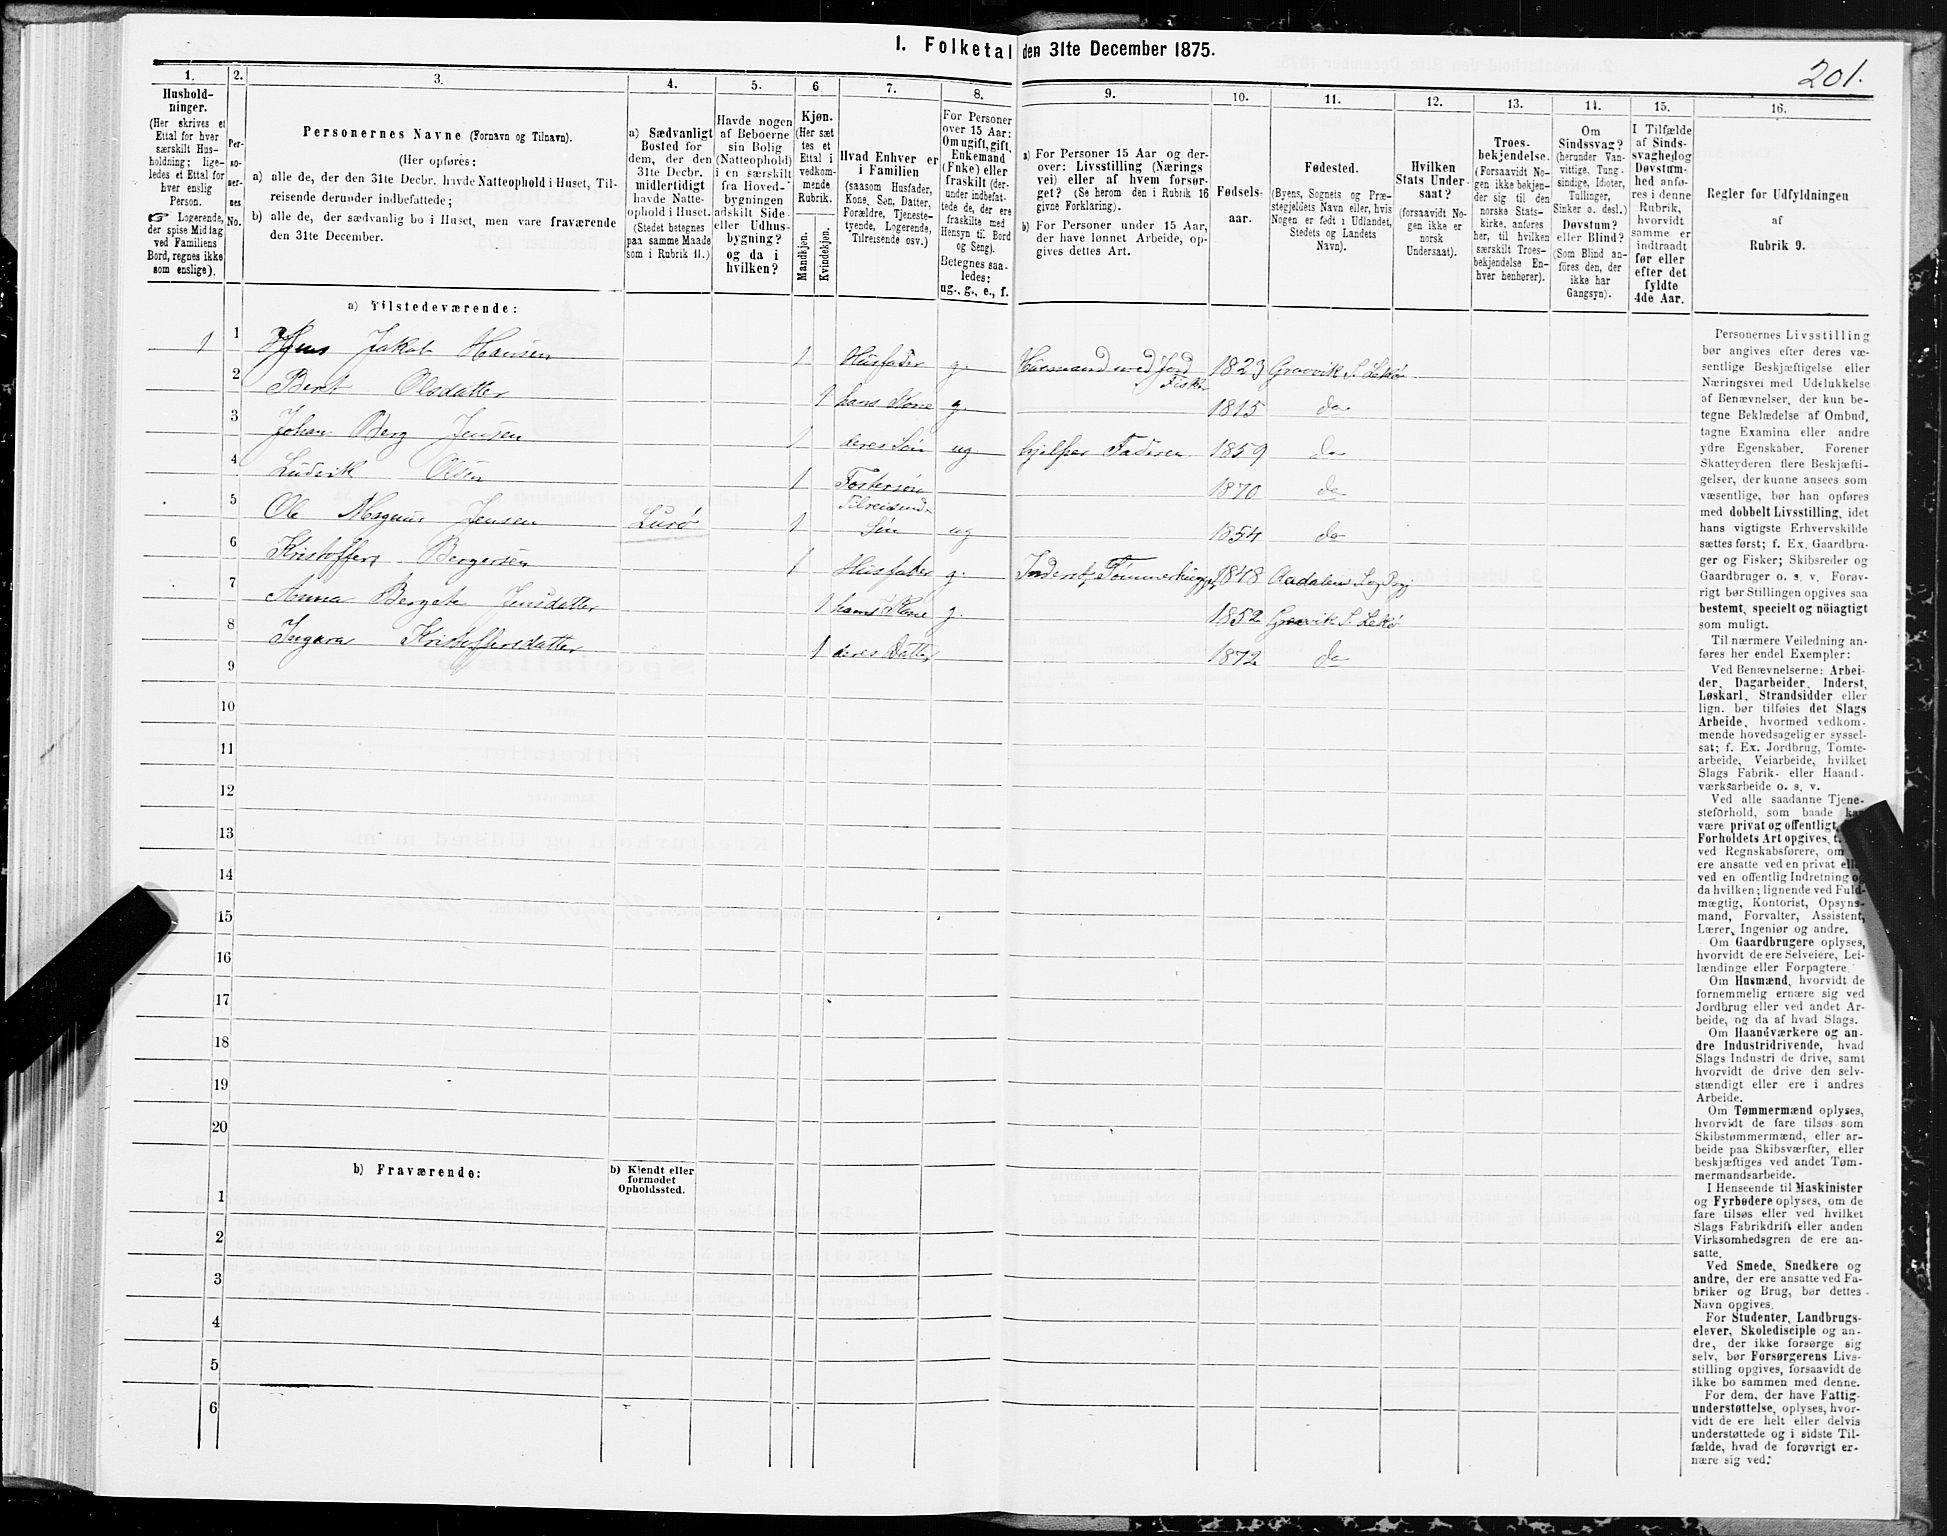 I. Folketal den 31te December 1875.
201.
1.
Hushold-
ninger.
(Her skrives et
Ettal for hver
særskilt Hus-
holdning; lige-
ledes et Ettal for
hver enslig
Person.
☞ Logerende,
der spise Middag
ved Familiens
Bord, regnes ikke
som enslige).
2.
Per-
so-
ner-
nes
No.
3.
Personernes Navne (Fornavn og Tilnavn).
(Her opføres:
a) alle de, der den 31te Decbr. havde Natteophold i Huset, Til-
reisende derunder indbefattede;
b) alle de, der sædvanlig bo i Huset, men vare fraværende
den 31te December.
4.
a) Sædvanligt
Bosted for
dem, der den
31te Decbr.
midlertidigt
havde Natte-
ophold i Huset.
(Stedet betegnes
paa samme Maade
som i Rubrik 11.)
5.
Havde nogen
af Beboerne
sin Bolig
(Natteophold)
i en særskilt
fra Hoved-
bygningen
adskilt Side-
eller Udhus-
bygning?
og da i
hvilken?
6
Kjøn.
(Her sæt
tes et
Ettal i
vedkom-
mende
Rubrik.
Mandkjøn.
Kvindekjøn.
7.
Hvad Enhver er
i Familien
(saasom Husfader,
Kone, Søn, Datter,
Forældre, Tjeneste-
tyende, Logerende,
Tilreisende osv.)
8.
For Personer
over 15 Aar:
Om ugift, gift,
Enkemand
(Enke) eller
fraskilt (der-
under indbefat-
tede de, der ere
fraskilte med
Hensyn til Bord
og Seng).
Betegnes saa-
ledes:
ug., g., e., f.
9.
a) For Personer 15 Aar og der-
over: Livsstilling (Nærings
vei) eller af hvem forsør-
get? (Se herom den i Rubrik 16
givne Forklaring).
b) For Personer under 15 Aar,
der have lønnet Arbeide, op-
gives dettes Art.
10.
Fødsels-
aar.
11.
Fødested.
(Byens, Sognets og Præ-
stegjeldets Navn eller, hvis
Nogen er født i Udlandet,
Stedets og Landets
Navn).
12.
Hvilken
Stats Under-
saat?
(forsaavidt No-
gen ikke er
norsk
Undersaat).
13.
Troes-
bekjendelse.
(Forsaavidt No-
gen ikke bekjen-
der sig til den
norske Stats-
kirke, anføres
her, til hvilken
særskilt Troes-
bekjendelse En-
hver henhører).
14.
Om
Sindssvag?
(herunder Van-
vittige, Tung-
sindige, Idioter,
Tullinger,
Sinker o. desl.)
Døvstum?
eller Blind?
(Som Blind an-
føres den, der
ikke har
Gangsyn).
15.
I Tilfælde
af Sinds-
svaghed og
Døvstum-
hed anfø-
res i denne
Rubrik,
hvorvidt
samme er
indtraadt
før eller
efter det
fyldte
4de Aar.
16.
Regler for Udfyldningen
af
Rubrik 9.
a) Tilstedeværende:
1 1 Jens Jakob Hansen 1 Husfader g. Husmand med Jord Fisker 1823 Graavik S. Lekø
2 Berit Olsdatter 1 hans Kone g. 1815 do
3 Johan Berg Jensen 1 deres Søn ug hjelper Faderen 1859 do
4 Ludvik Olsen 1 Fostersøn 1870 do
5 Ole Magnus Jensen Lurø 1 Tilreisende Søn ug 1854 do
6 Kristoffer Bergersen 1 Husfader g. Inderst, Tømmerhugger 1848 Aadalen
7 Anna Bergete Jensdatter 1 hans Kone g. 1852 Graavik S. Lekø
8 Ingara Kristoffersdatter 1 deres Datter 1872 do
9
10
11
12
13
14
15
16
17
18
19
20
b) Fraværende:
b) Kjendt eller
formodet
Opholdssted.
1
2
3
4
5
6
Personernes Livsstilling
bør angives efter deres væ-
sentlige Beskjæftigelse eller
Næringsvei med Udelukkelse
af Benævnelser, der kun be-
tegne Beklædelse af Ombud,
tagne Examina eller andre
ydre Egenskaber. Forener
Skatteyderen flere Beskjæfti-
gelser, der kunne ansees som
væsentlige, bør han opføres
med dobbelt Livsstilling, idet
hans vigtigste Erhvervskilde
sættes først; f. Ex. Gaardbru-
ger og Fisker; Skibsreder og
Gaardbruger o. s. v. Forøv-
rigt bør Stillingen opgives saa
bestemt, specielt og nøiagtigt
som muligt.
Til nærmere Veiledning an-
føres her endel Exempler:
Ved Benævnelserne: Arbei-
der, Dagarbeider, Inderst,
Løskarl, Strandsidder eller
lign. bør tilføies det Slags
Arbeide, hvormed vedkom-
mende hovedsagelig er syssel-
sat; f. Ex. Jordbrug, Tomte-
arbeide, Veiarbeide, hvilket
Slags Fabrik- eller Haand-
værksarbeide o. s. v.
Ved alle saadanne Tjene-
steforhold, som baade kan
være privat og offentligt,
Forholdets Art opgives, t.
ved Regnskabsførere, om
ere ansatte ved en privat eller
ved en offentlig Indretning og
da hvilken; lignende ved Fuld-
mægtig, Kontorist, Opsyns-
mand, Forvalter, Assistent,
Lærer, Ingeniør og andre.
Om Gaardbrugere oplyses,
hvorvidt de ere Selveiere, Lei-
lændinge eller Forpagtere.
Om Husmænd, hvorvidt de
fornemmelig ernære sig ved
Jordbrug eller ved andet Ar-
beide, og da af hvad Slags.
Om Haandværkere og an-
dre Industridrivende, hvad
Slags Industri de drive, samt
hvorvidt de drive den selv-
stændigt eller ere i andres
Arbeide.
Om Tømmermænd oplyses,
hvorvidt de fare tilsøs som
Skibstømmermænd, eller ar-
beide paa Skibsværfter, eller
beskjæftiges ved andet Tøm-
mermandsarbeide.
I Henseende til Maskinister
og Fyrbødere oplyses, om de
fare tilsøs eller ved hvilket
Slags Fabrikdrift eller anden
Virksomhedsgren de ere an-
satte.
Ved Smede, Snedkere og
andre, der ere ansatte ved Fa-
briker og Brug, bør dettes
Navn opgives.
For Studenter, Landbrugs-
elever, Skoledisciple og an-
dre, der ikke forsørge sig
selv, bør Forsørgerens Livs-
stilling opgives, forsaavidt de
ikke bo sammen med denne.
For dem, der have Fattig-
understøttelse, oplyses, hvor-
vidt de ere helt eller delvis
understøttede og i sidste Til-
fælde, hvad de forøvrigt er-
nære sig ved.